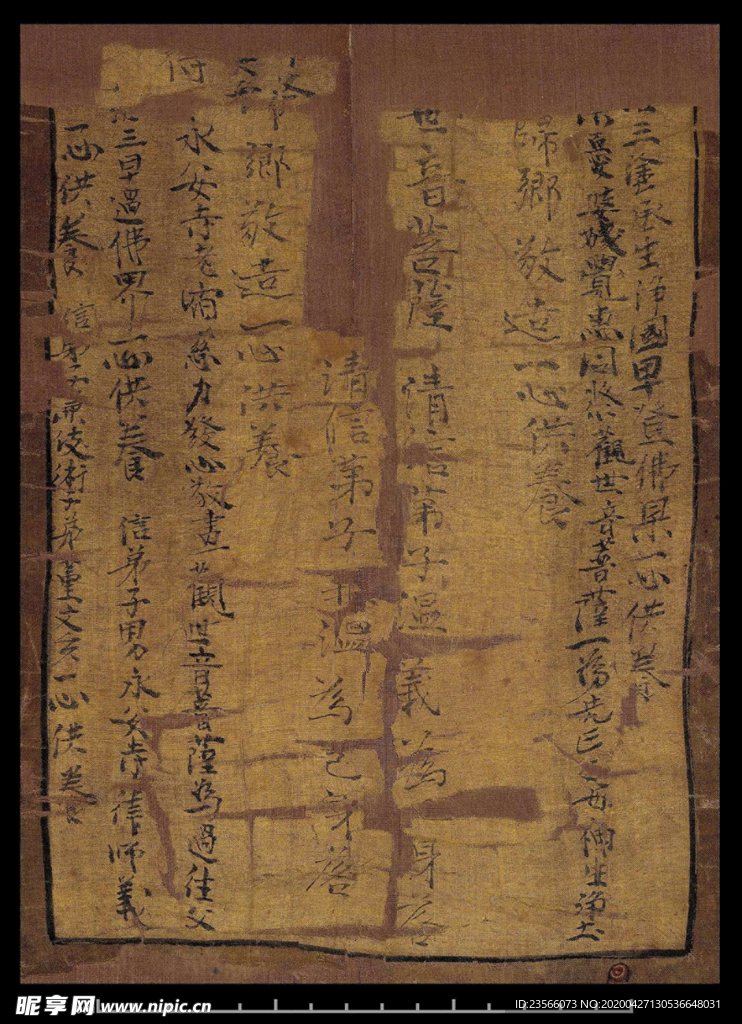 三塗永生淨國早登佛果一心供養
覺惠同悲觀世音菩薩一為先亡父母神生淨土
歸鄉敬造一心供養
世音菩薩 清信弟子溫義為 身落
清信弟子 溫為己身落
歸鄉敬造一心供養
永安寺老宿慈力發心敬畫觀世音菩薩為過往父
三早過佛界一心供養 信弟子男永安寺律師義
一心供養 信弟子兼伎術子弟董文亥一心供養
昵享网 www.nipic.cn
ID:23566073 NO:20200427130536648031